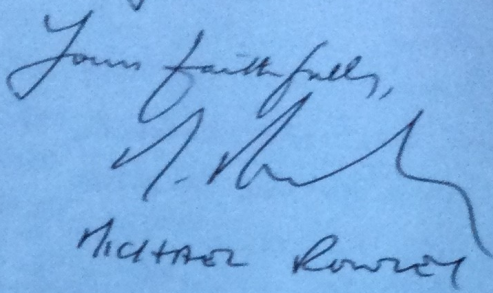 Yours faithfully,
M. Rowley
MICHAEL ROWLEY